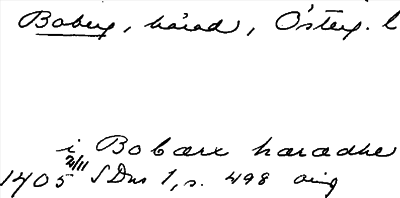 Boberg, härad, Österg. l
i Bobærx haradhe
1405 2/11 SDns 1, s. 498 orig